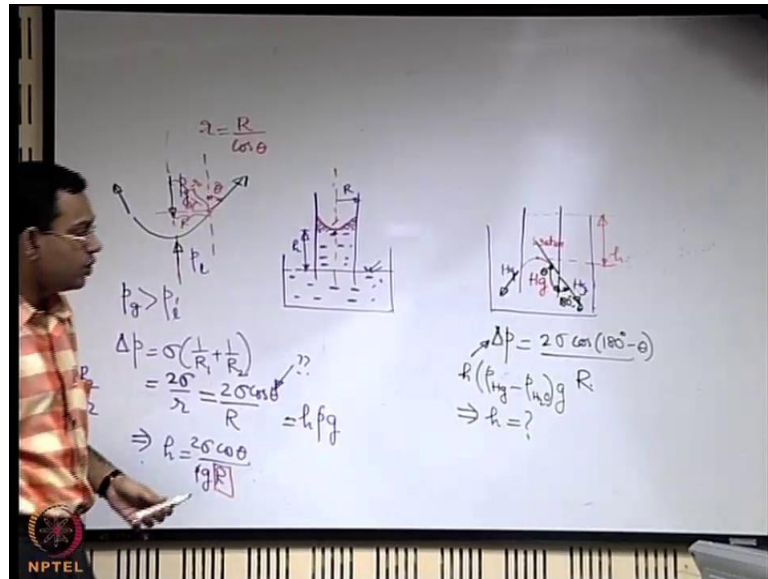 r = R / cosθ
θ
r
R
p_l
p_g > p_l
Δp = σ(1/R₁ + 1/R₂)
= 2σ/r = 2σcosθ/R = hρg
??
⇒ h = 2σcosθ/ρgR
R
h
water
Hg
Hg
Hg
180°-θ
h
Δp = 2σcos(180°-θ)/R
h(ρ_Hg - ρ_H₂O)g
⇒ h = ?
NPTEL